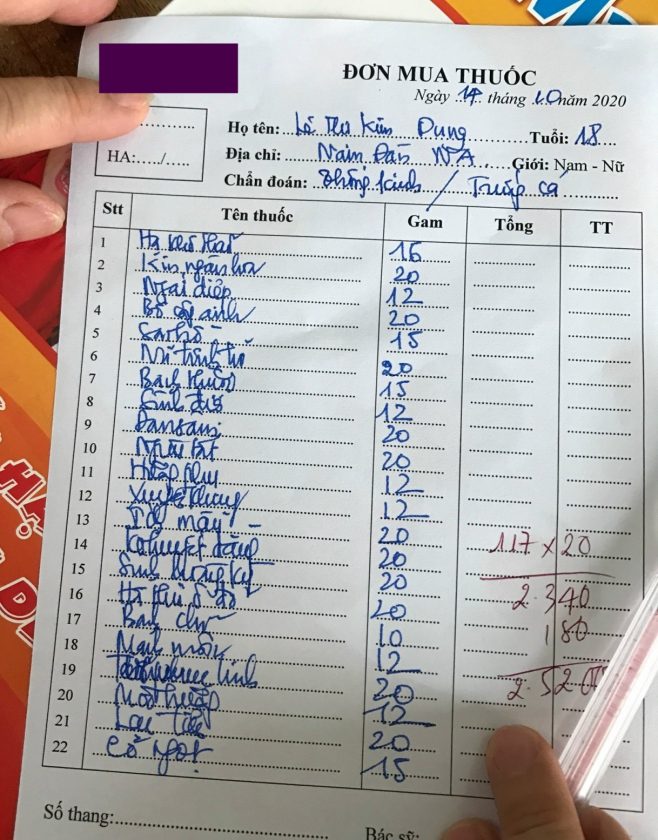 ĐƠN MUA THUỐC
Ngày 17 tháng 10 năm 2020
Họ tên: Thị Kim Dung Tuổi: 18
Địa chỉ: Nam Đàn NA Giới: Nam - Nữ
HA:...../.....
Chẩn đoán: Thống kinh / Trứng cá
Stt Tên thuốc Gam Tổng TT
1 Hạ khô thảo 16
2 Kim ngân hoa 20
3 Ngải diệp 12
4 Bồ công anh 20
5 15
6 20
7 Bạch thược 15
8 Sinh địa 12
9 Đan sâm 20
10 Ngưu tất 20
11 12
12 Xuyên khung 12
13 20
14 Kê huyết đằng 20 117 x 20
15 20
16 Hà thủ ô đỏ 20 2.340
17 Bạch chỉ 10 180
18 Mạch môn 12
19 20 2.520
20 12
21 Lạc tiên 20
22 Cỏ ngọt 15
Số thang:
Bác sỹ: